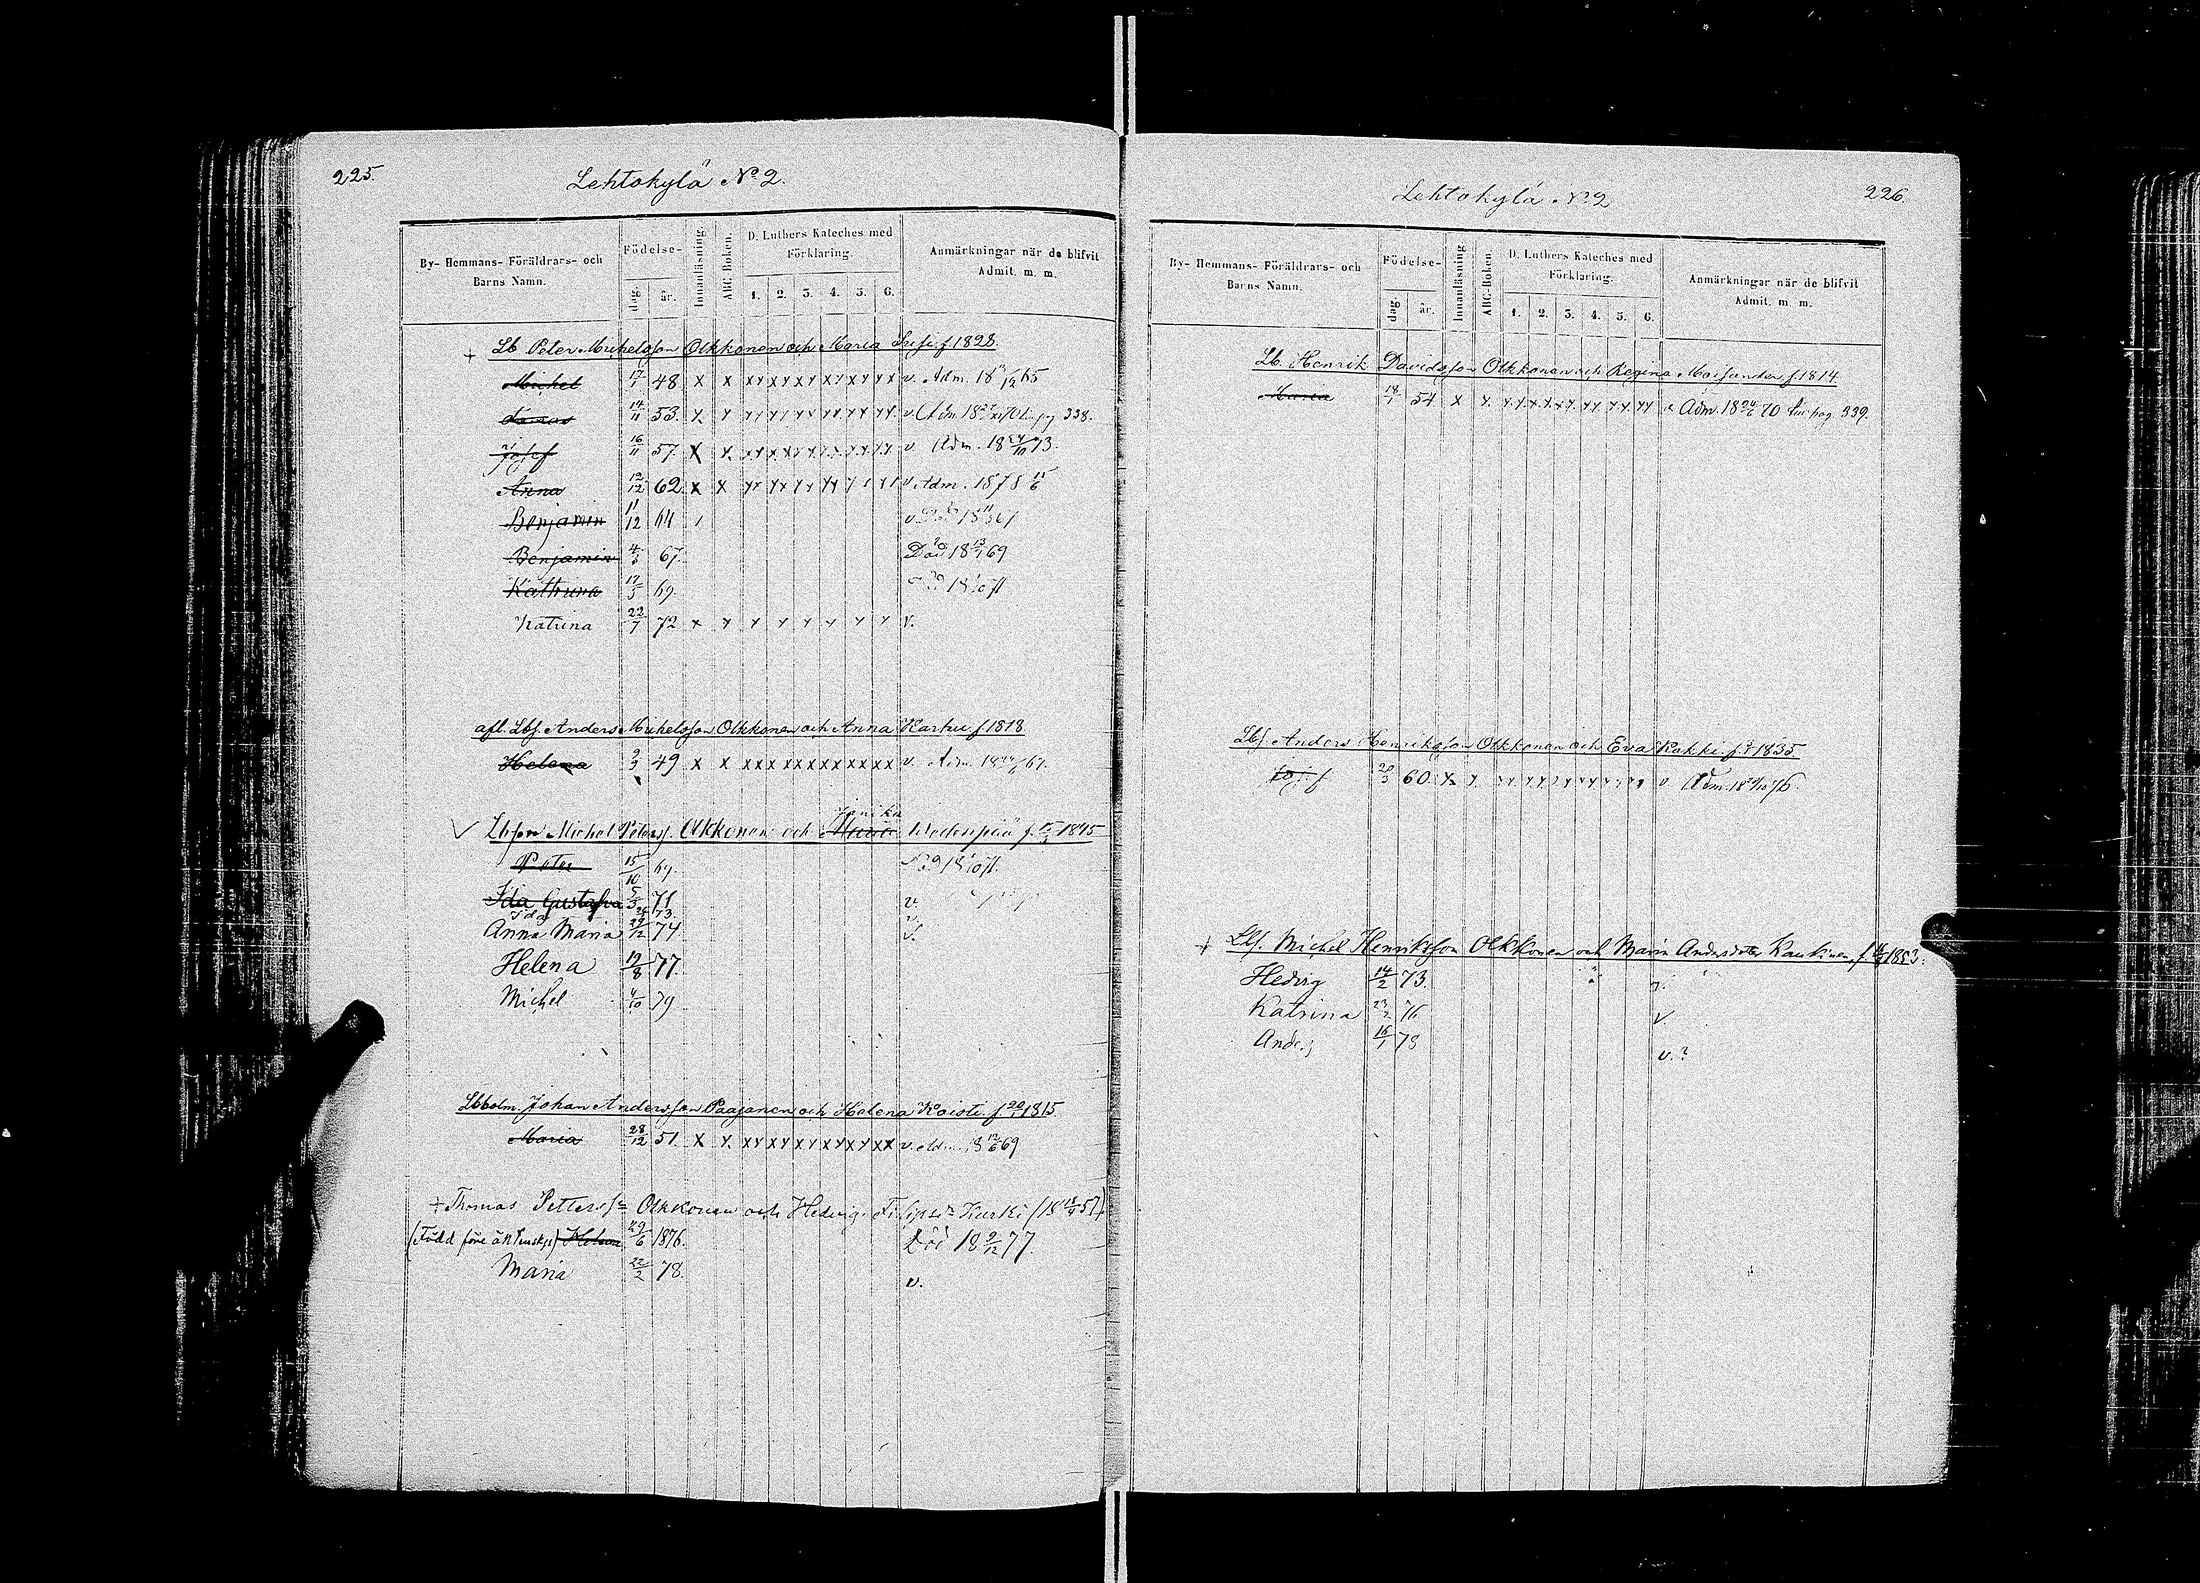 225.
Lehtokylä No 2.
By- Hemmans- Föräldrars- och Barns Namn.
Födelse-
dag
år.
Innanläsning
ABC-Boken.
D. Luthers Kateches med Förklaring.
1. 2. 3. 4. 5. 6.
Anmärkningar när de blifvit Admit. m. m.
+ Lb. Peter Michelsson Olkkonen och Maria Susi f 1828.
Michel 17/1 48 x x xx xx xx xx xx xx v. Adm. 18 /12 65
14/11 53. x x xx xx xx xx xx xx v. Adm. 18 70 pag 338.
Josef 16/11 57. x x. xx xx xx xx xx xx v Adm. 18 24/10 73.
Anna 12/12 62 x x xx xx xx xx v. Adm. 1878 15/6
Benjamin 11/12 64 v 18 67
Benjamin 4/3 67. Död 18 13/1 69
Kathrina 17/5 69.
Katrina 22/7 72 x x x x x x x x v.
afl. Lbf. Anders Michelsson Olkkonen och Anna Karhu f 1818
Helena 2/3 49 x x xx xx xx xx xx xx v. Adm. 18 67.
√ Lbson Michel Peterss. Olkkonen och Maria Wedenpää f. 1845
Peter 15/10 69.
Ida Gustafva 5/3 71 v.
Ida 73. v.
Anna Maria 29/12 74 v.
Helena 19/8 77.
Michel 4/10 79
Lbbolm. Johan Andersson Paajanen och Helena Koisti f. 20/1 1815
Maria 28/12 51. x x. xx xx xx xx xx xx v. Adm. 18 12/6 69
+ Thomas Petterss Olkkonen och Hedvig Kurki (18 57)
(Född före äktenskap) Helena 29/6 1876. Död 18 9/12 77.
Maria 22/2 78. v.
Lehtokylä No 2
226.
By- Hemmans- Föräldrars- och Barns Namn.
Födelse-
dag
år.
Innanläsning
ABC-Boken.
D. Luthers Kateches med Förklaring.
1. 2. 3. 4. 5. 6.
Anmärkningar när de blifvit Admit. m. m.
Lb. Henrik Davidsson Olkkonen och Regina Moisander f. 1814.
Maria 18/1 54 x x. xx xx xx xx xx xx v Adm. 18 24/6 70 pag. 339.
Lbf. Anders Henriksson Olkkonen och Eva Kukki f. 1835
Josef 20/3 60. x x. xx xx xx xx xx xx v. Adm. 18 76.
+ Lbf. Michel Henriksson Olkkonen och Maria Andersdotter f. 1853.
Hedvig 14/2 73. v.
Katrina 23/2 76 v
Anders 16/1 78 v. ?